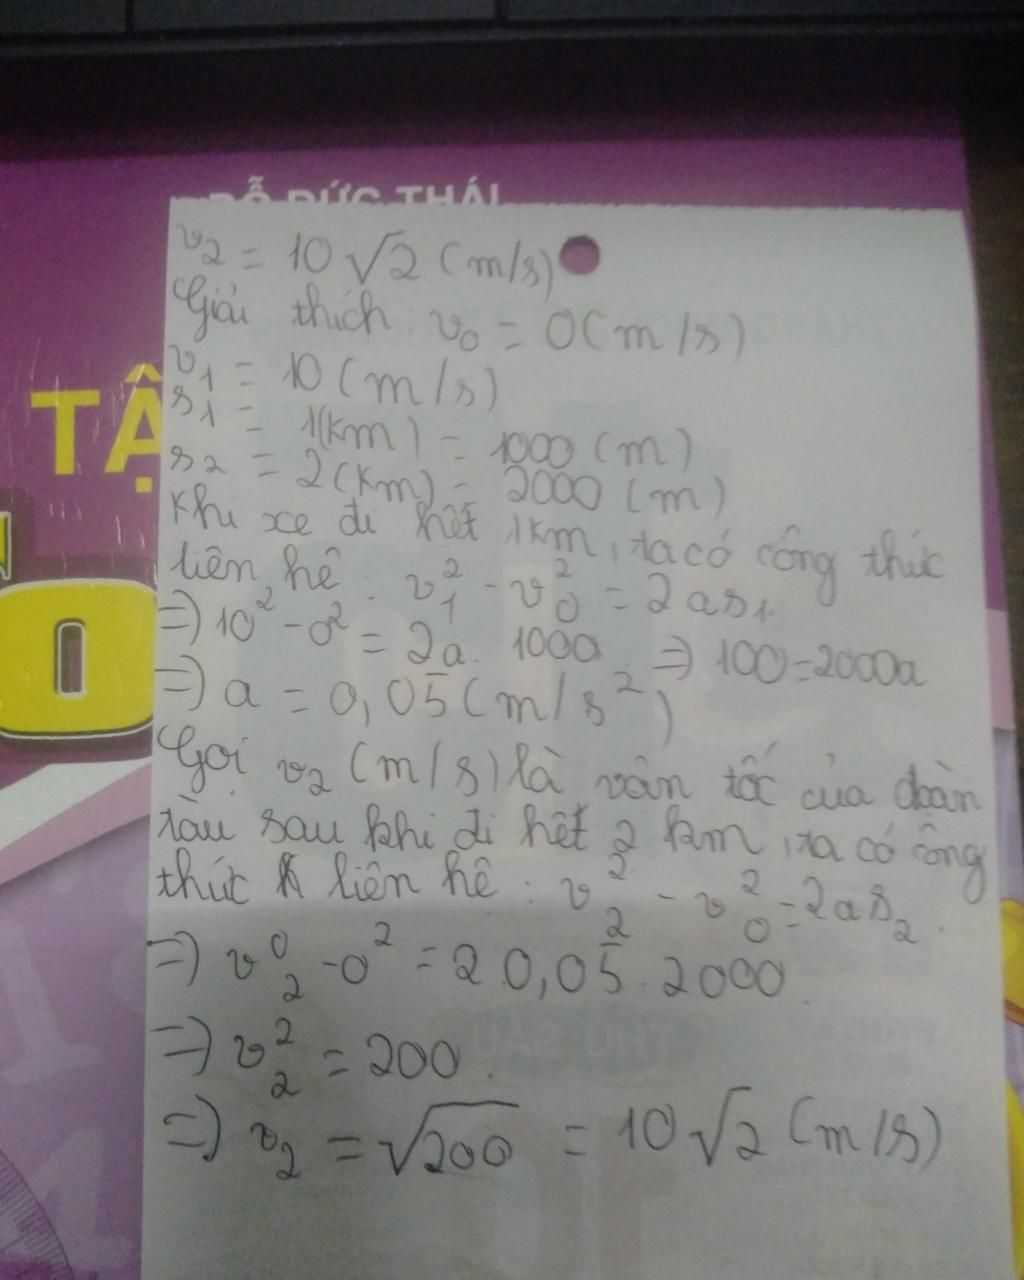 ĐỖ ĐỨC THÁI
TẬ
v₂ = 10√2 (m/s)
Giải thích: v₀ = 0(m/s)
v₁ = 10 (m/s)
s₁ = 1(km) = 1000 (m)
s₂ = 2(km) = 2000 (m)
Khi xe đi hết 1km, ta có công thức
liên hệ: v₁² - v₀² = 2as₁
=> 10² - 0² = 2a. 1000 => 100=2000a
=> a = 0,05(m/s²)
Gọi v₂ (m/s) là vận tốc của đoàn
tàu sau khi đi hết 2 km, ta có công
thức liên hệ: v₂² - v₀² = 2as₂.
=> v₂⁰ - 0² = 2 0,05. 2000.
=> v₂² = 200.
=> v₂ = √200 = 10√2 (m/s)